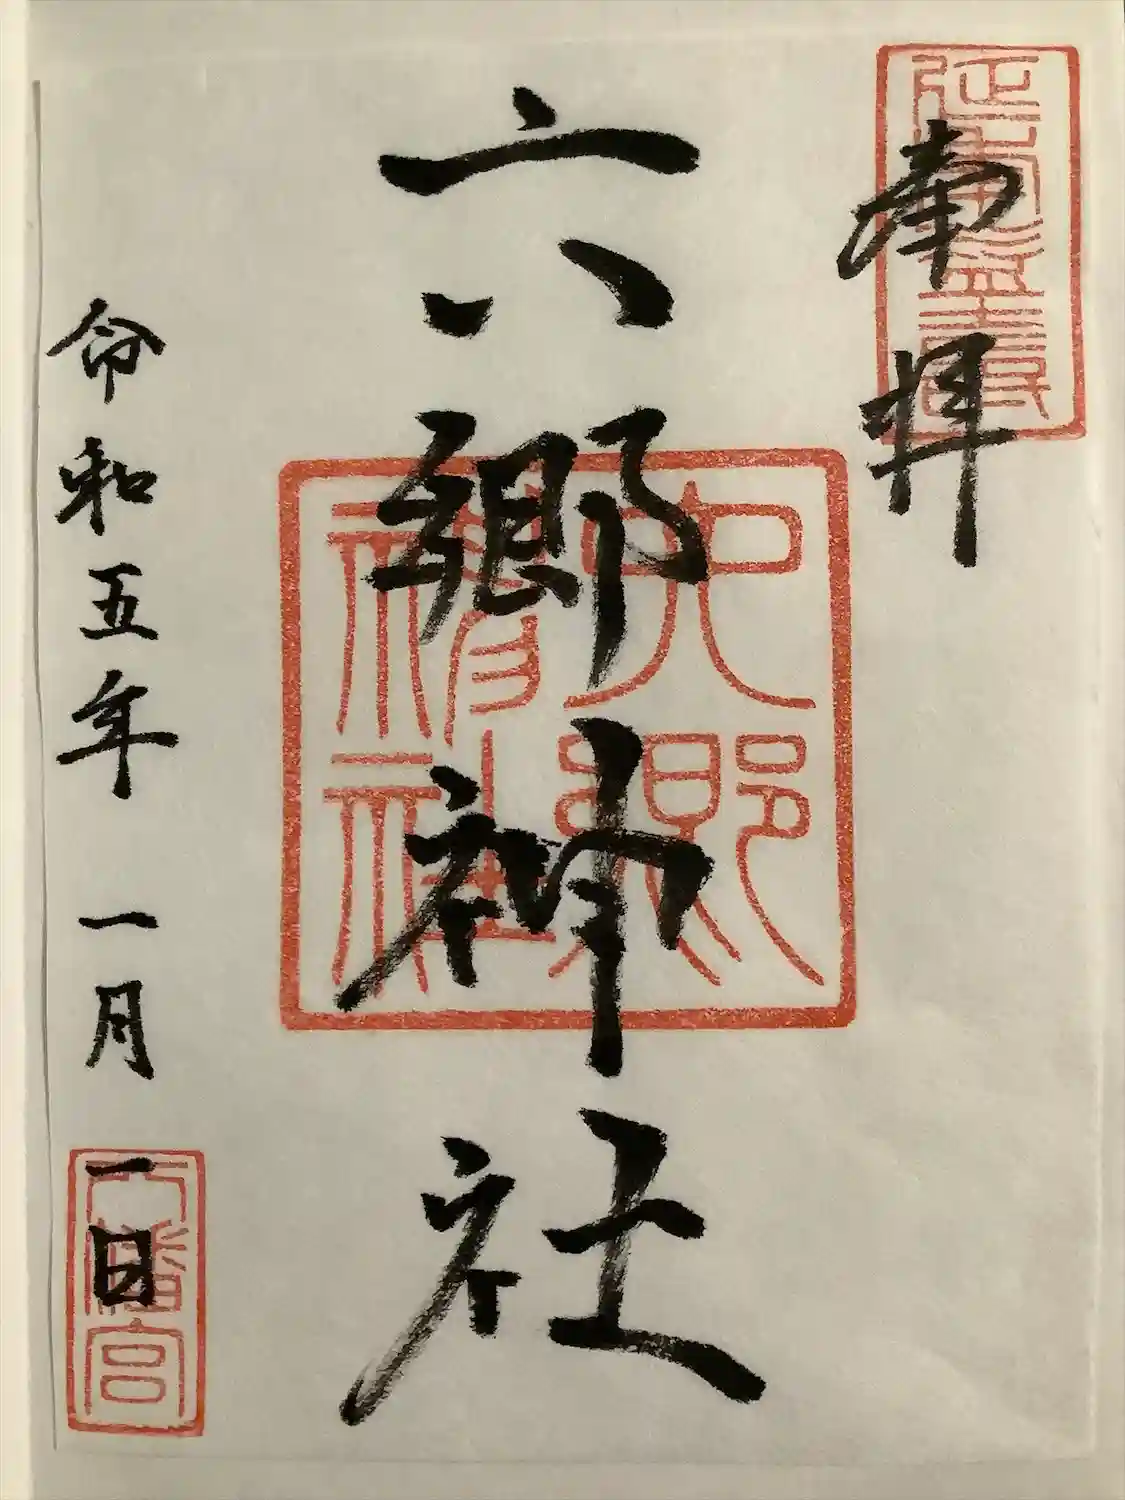 奉拝
延壽益壽
六郷神社
六郷神社
令和五年 一月 一日
八幡宮